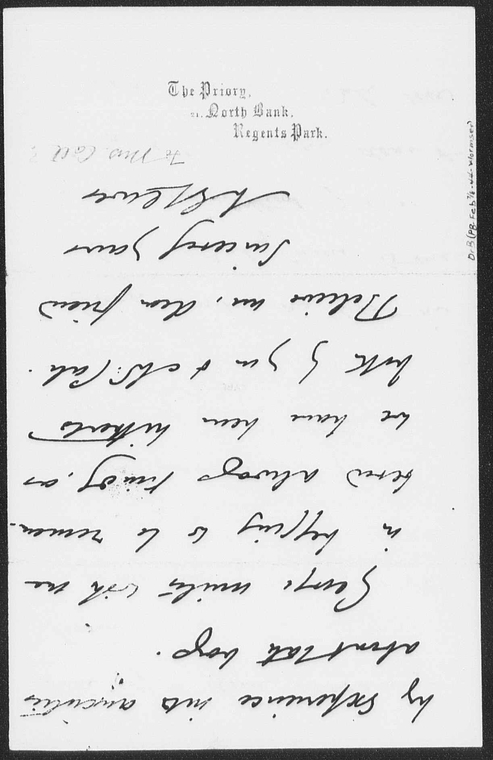 The Priory,
21. North Bank,
Regents Park.
by experience into anxieties
about tall boys.
George unites with me
in begging to be remem-
bered always kindly, as
we have been hitherto
both by you & Mr. Call.
Believe me, dear friend
Sincerely yours
M E Lewes
To Mrs. Call ?